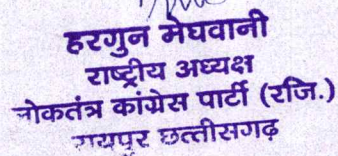 हरगुन मेघवानी
राष्ट्रीय अध्यक्ष
लोकतंत्र कांग्रेस पार्टी (रजि.)
रायपुर छत्तीसगढ़